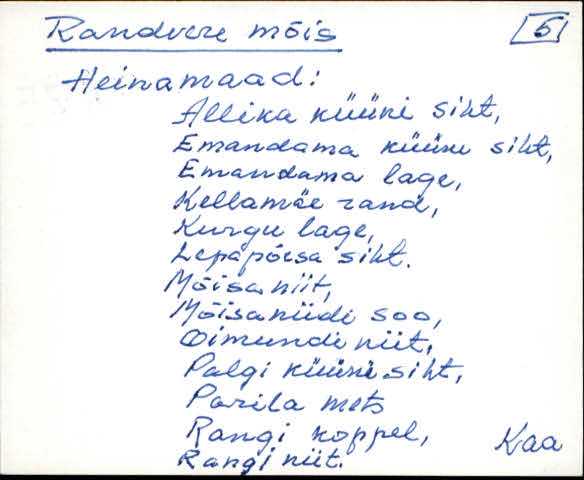 Randvere mõis 5
Heinamaad:
Allika küüni siht,
Emandama küüni siht,
Emandama lage,
Kellamäe rand,
Kurgu lage,
Lepapõesa siht.
Mõisa niit,
Mõisaniidi soo,
Oimundi niit,
Palgi küüni siht,
Parila mets
Rangi koppel,
Rangi niit.
Kaa